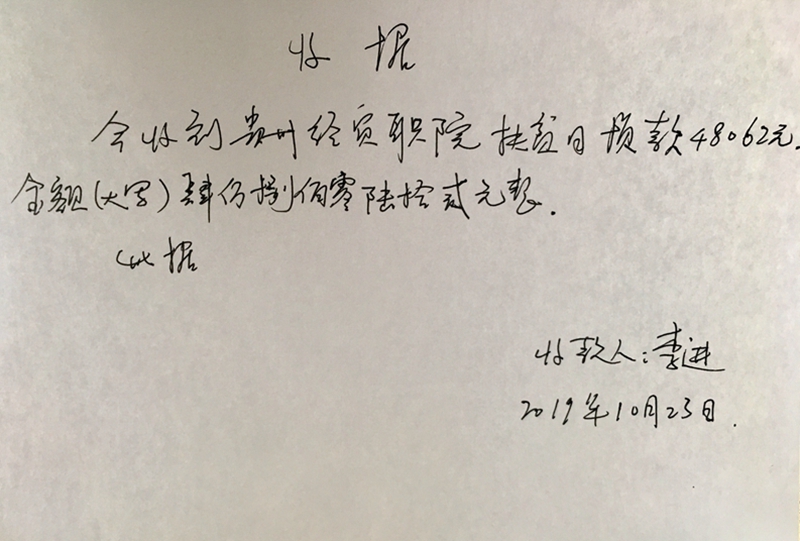 收 据
今收到贵州经贸职院扶贫日捐款48062元.
金额(大写)肆仟捌佰零陆拾贰元整.
此据
收款人:李进
2019年10月23日.